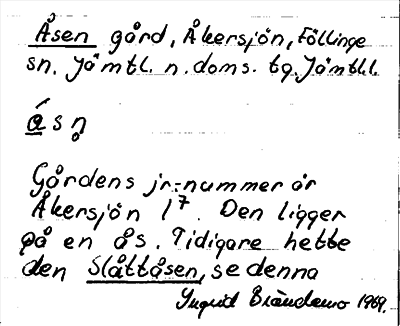 Åsen gård, Åkersjön, Föllinge
sn. Jämtl. n. doms. tg. Jämtl.l.
á s n̥
Gårdens jr.-nummer är
Åkersjön 1⁷. Den ligger
på en ås. Tidigare hette
den Slåttåsen, se denna
Ingrid Brändemo 1969.